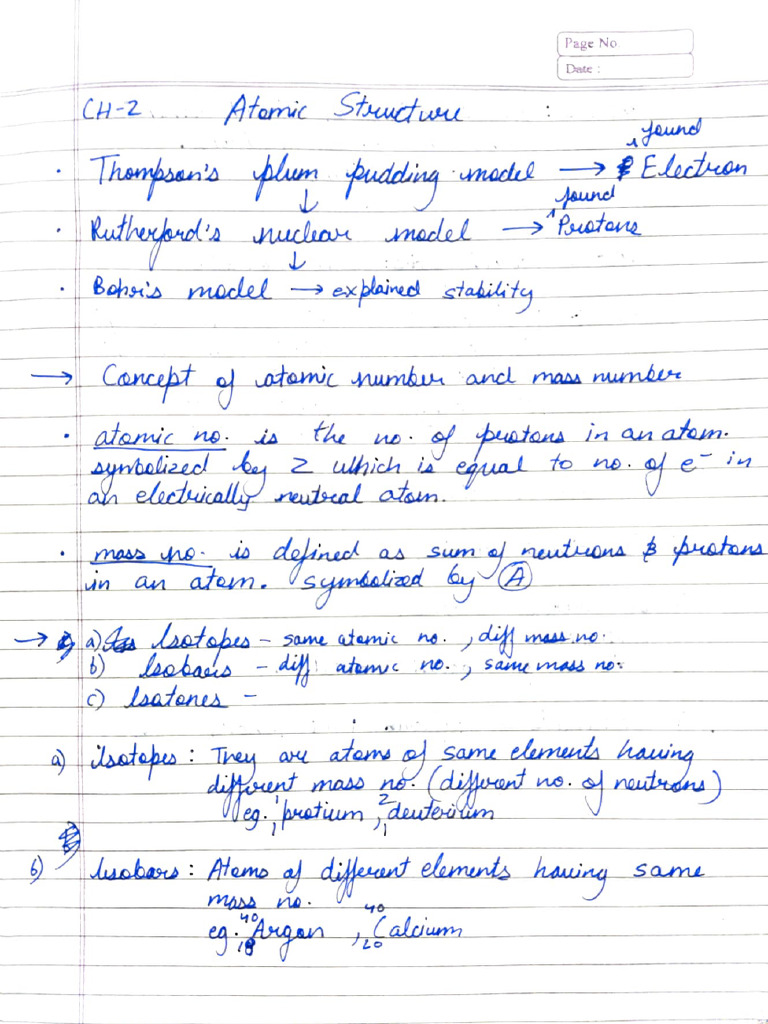 Page No
Date :
CH-2 ..... Atomic Structure :
found
· Thompson's plum pudding model → Electron
↓ found
· Rutherford's nuclear model → Protons
↓
· Bohr's model → explained stability
→ Concept of atomic number and mass number
· atomic no. is the no. of protons in an atom.
symbolized by Z which is equal to no. of e⁻ in
an electrically neutral atom.
· mass no. is defined as sum of neutrons & protons
in an atom. symbolized by A
→ a) Isotopes - same atomic no., diff mass no.
b) Isobars - diff atomic no., same mass no.
c) Isotones -
a) isotopes : They are atoms of same elements having
different mass no. (different no. of neutrons)
eg. ¹₁protium, ²₁deuterium
b) Isobars : Atoms of different elements having same
mass no.
eg. ⁴⁰₁₈Argon , ⁴⁰₂₀Calcium